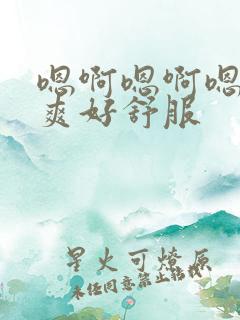 嗯啊嗯啊嗯
爽好舒服
星火可燎原
未经同意禁止转载